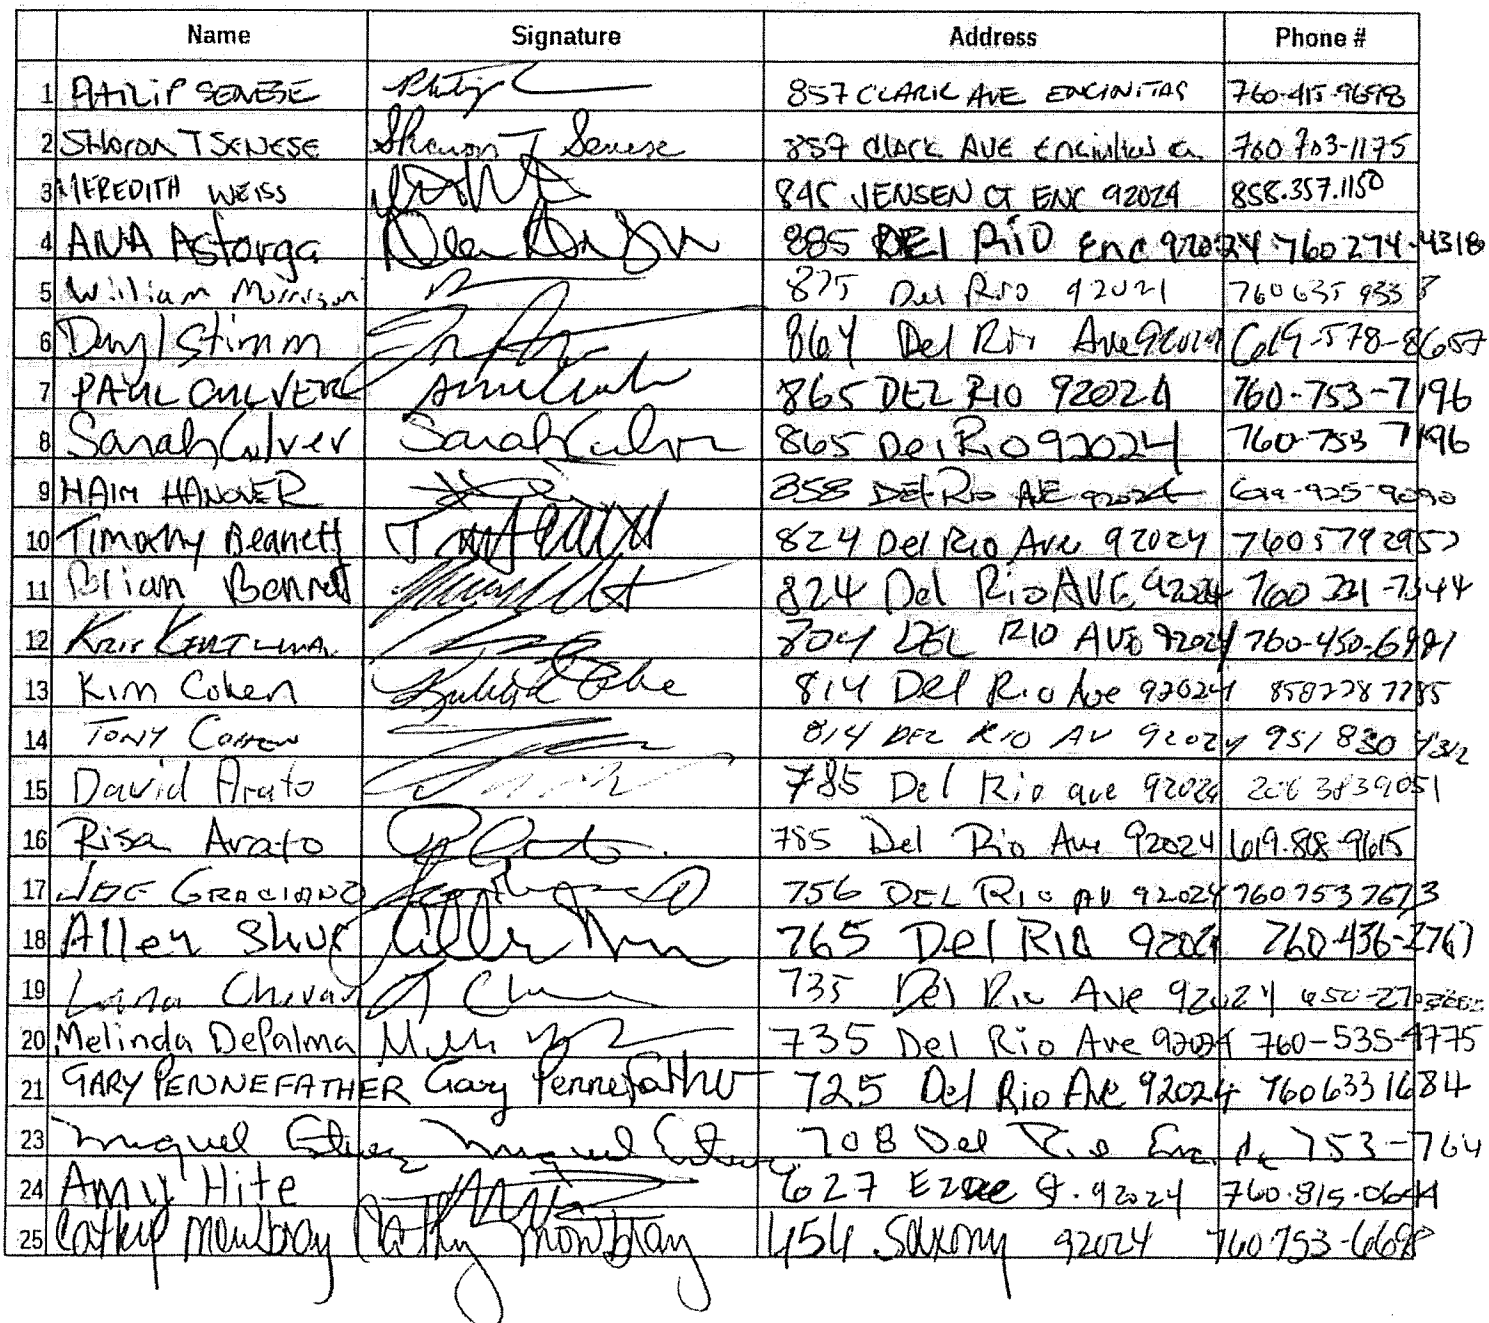 Name Signature Address Phone #
1 PHILIP SENESE Philip 857 CLARK AVE ENCINITAS 760-415-9698
2 SHARON T SENESE Sharon T Senese 857 CLARK AVE Encinitas Ca 760 703-1175
3 MEREDITH WEISS 845 JENSEN CT ENC 92024 858.357.1150
4 ANA Astorga 885 DEL RIO Enc 92024 760 274-4318
5 William Morrison 875 Del Rio 92021 760 635 933
6 Daryl Stimm 864 Del Rio Ave 92024 619-578-8657
7 PAUL CULVER 865 DEL RIO 92024 760-753-7196
8 Sarah Culver Sarah Culver 865 Del Rio 92024 760-753 7196
9 HAIM HANOVER 858 DEL RIO AVE 92024 619-925-9090
10 Timothy Bennett 824 Del Rio Ave 92024 760 579 2952
11 Brian Bennett 824 Del Rio AVE 92024 760 221-7344
12 Kris 804 DEL RIO AVE 92024 760-450-6991
13 Kim Cohen 814 Del Rio Ave 92024 858 228 7785
14 TONY COHEN 814 DEL RIO AV 92024 951 830 4312
15 David Arato 785 Del Rio ave 92024 206 3839051
16 Risa Arato 785 Del Rio Ave 92024 619.818-9615
17 JOE GRACIANO 756 DEL RIO AV 92024 760 753 7673
18 Allen Shur 765 Del Rio 92024 760-436-2767
19 Lana Chivan 735 Del Rio Ave 92024 650-
20 Melinda DePalma 735 Del Rio Ave 92024 760-535-4775
21 GARY PENNEFATHER Gary Pennefather 725 Del Rio Ave 92024 760 633 1684
23 Miguel Estevez Miguel 708 Del Rio Enc. Ca 753-764
24 Amy Hite 627 Ezee St. 92024 760.815.0644
25 Cathy Mowbray Cathy Mowbray 454 Saxony 92024 760 753-6698